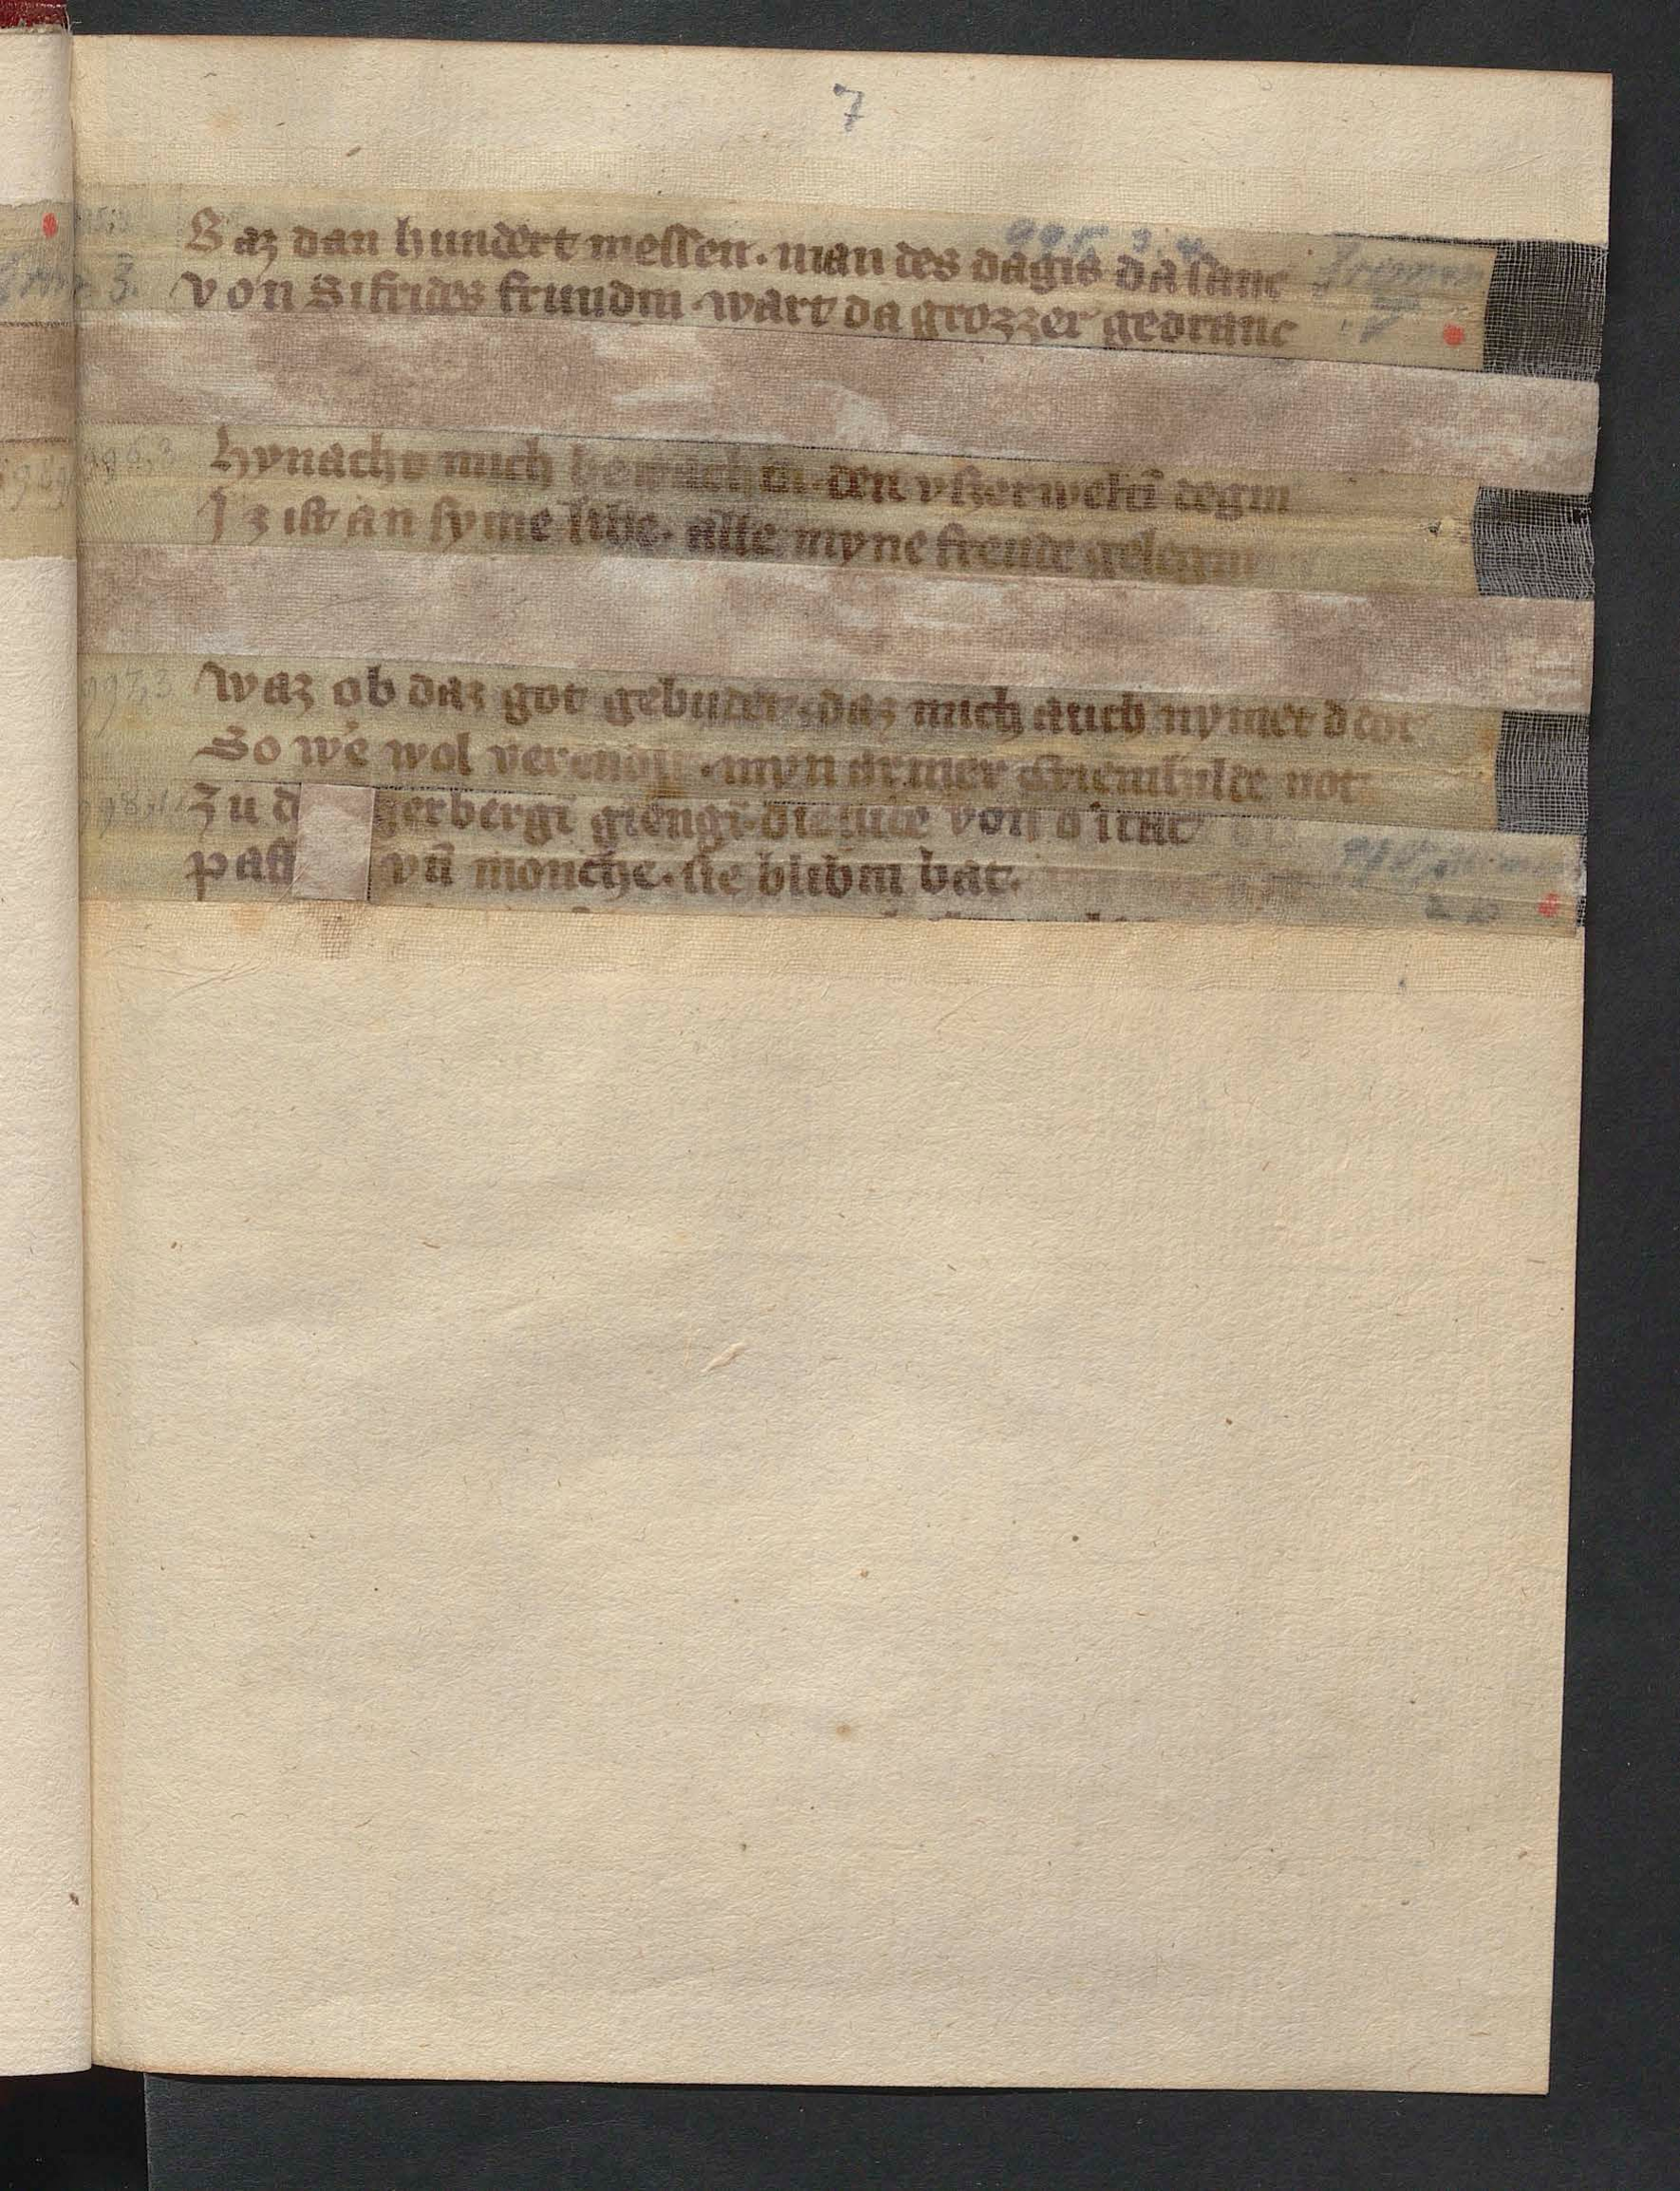 7
Baz dan hundert messen. man des dagis da sanc
von Sifrides frundin. wart da grozzer gedranc
996,3 hynacht mich bewachin. den vszerweltē degin
Iz ist an syme libe. alle myne freude gelegin
997,3 waz ob daz got gebudet. daz mich auch nymet d dot
So we͛ wol verendit. myn armer Criemhilde not
zu d gerbergī giengī. die lute von d͛ stat
paff vn̄ monche. sie blibin bat.